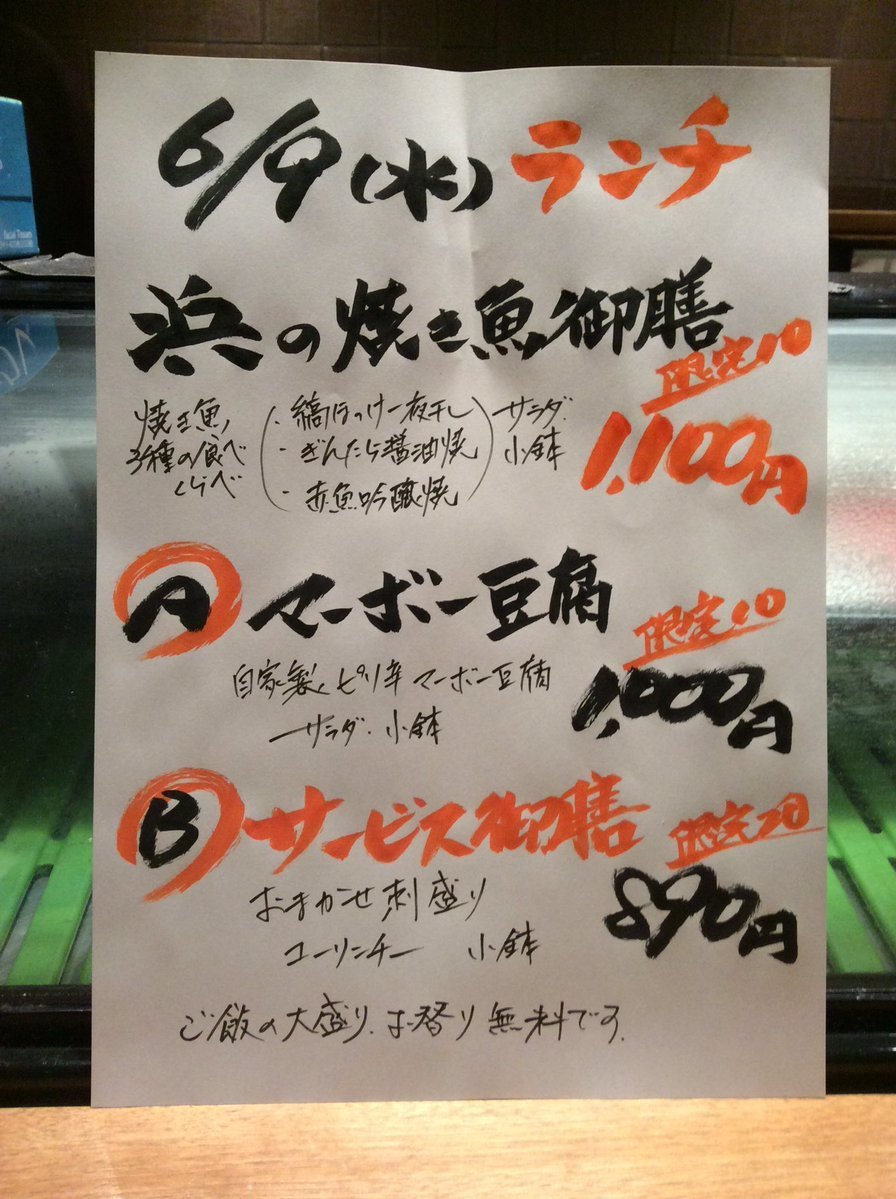 6/9(水)ランチ
浜の焼き魚御膳
限定10
焼き魚
3種の食べ
くらべ
・縞ほっけ一夜干し
・ぎんだら醤油焼
・赤魚吟醸焼
サラダ
小鉢
1,100円
A マーボー豆腐
限定10
自家製ピリ辛マーボー豆腐
サラダ・小鉢
1,000円
B サービス御膳
限定20
おまかせ刺盛り
ユーリンチー 小鉢
890円
ご飯の大盛り、お替り無料です。
Facial Tissues